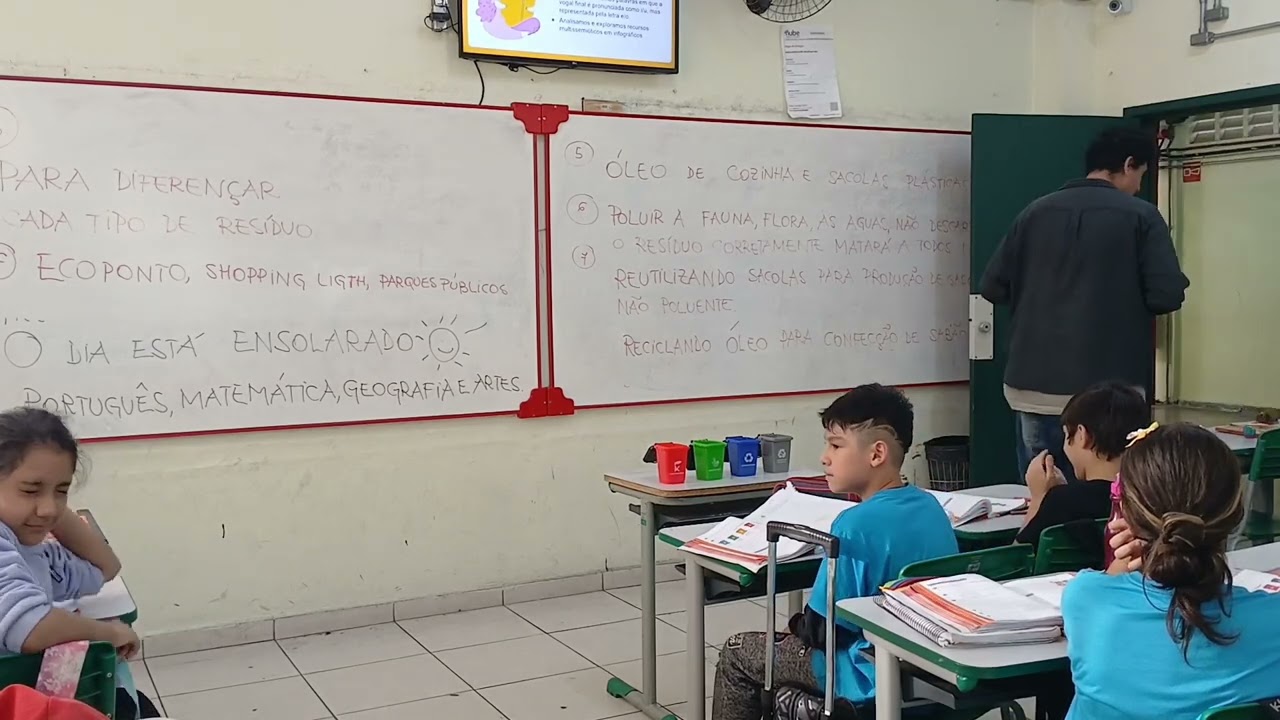 vogal final é pronunciada como i/u, mas
representada pela letra e/o.
Analisamos e exploramos recursos
multissemióticos em infográficos
PARA DIFERENÇAR
CADA TIPO DE RESÍDUO
ECOPONTO, SHOPPING LIGTH, PARQUES PÚBLICOS
O DIA ESTÁ ENSOLARADO
PORTUGUÊS, MATEMÁTICA, GEOGRAFIA E ARTES.
5 ÓLEO DE COZINHA E SACOLAS PLÁSTICA
6 POLUIR A FAUNA, FLORA, AS AGUAS, NÃO
O RESÍDUO CORRETAMENTE MATARÁ A TODOS
7 REUTILIZANDO SACOLAS PARA PRODUÇÃO DE
NÃO POLUENTE.
RECICLANDO ÓLEO PARA CONFECÇÃO DE SABÃO